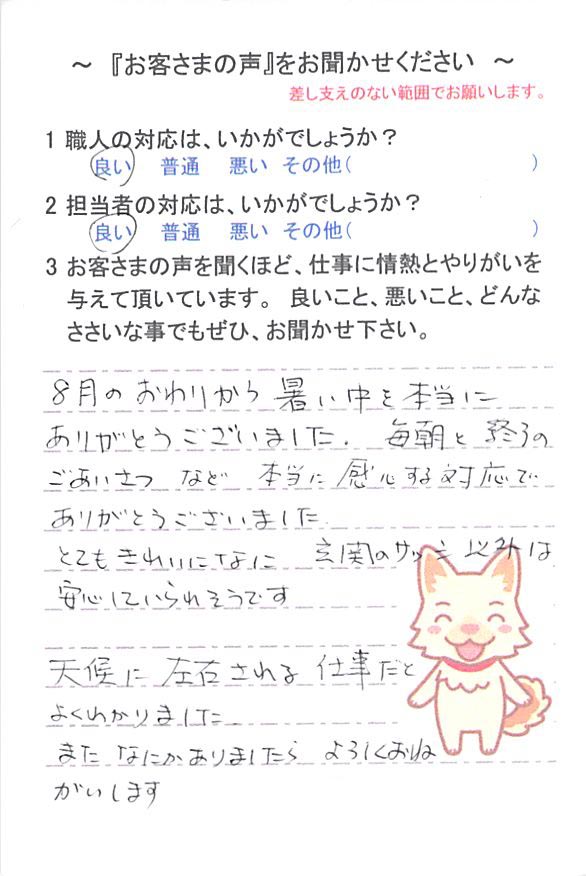 ～ 『お客さまの声』をお聞かせください ～
差し支えのない範囲でお願いします。
1 職人の対応は、いかがでしょうか？
良い 普通 悪い その他( )
2 担当者の対応は、いかがでしょうか？
良い 普通 悪い その他( )
3 お客さまの声を聞くほど、仕事に情熱とやりがいを
与えて頂いています。 良いこと、悪いこと、どんな
ささいな事でもぜひ、お聞かせ下さい。
8月のおわりから暑い中を本当に
ありがとうございました. 毎朝と終るの
ごあいさつ など 本当に感心する対応で
ありがとうございました.
とてもきれいになに 玄関のサッシ以外は
安心していられそうです
天候に左右される仕事だと
よくわかりました.
またなにかありましたら よろしくおね
がいします